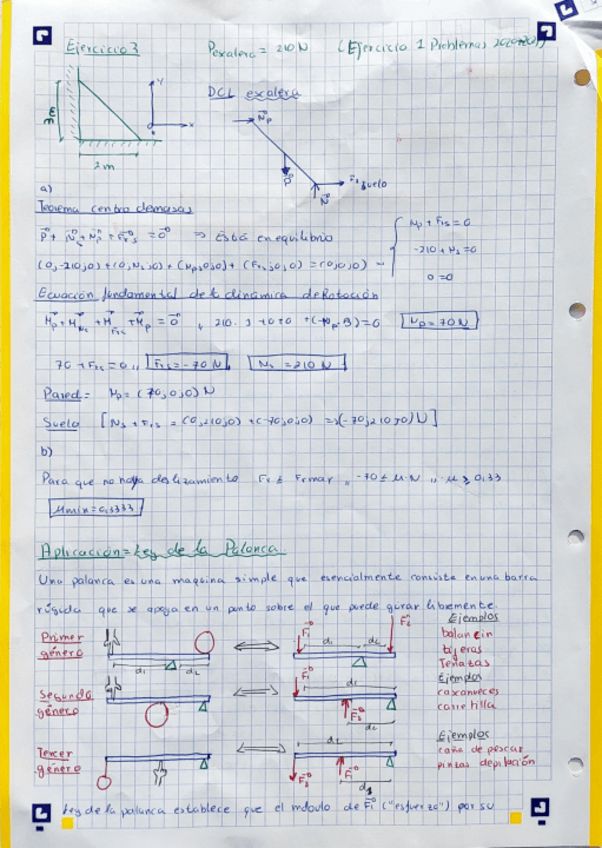 Ejercicio 3 Pescalera = 210 N (Ejercicio 1 Problemas
DCL escalera
Y
x
3m
2m
Np
P
Fr suelo
N
a)
Teorema centro de masas
P + Ns + Np + Frs = 0 => Está en equilibrio
(0,-210,0) + (0,Ns,0) + (Np,0,0) + (Frs,0,0) = (0,0,0)
Np + Frs = 0
-210 + Ns = 0
0 = 0
Ecuación fundamental de la dinámica de Rotación
Mp + MNs + MFrs + Mp = 0 , 210 · 1 + 0 + 0 + (-Np · 3) = 0 Np = 70 N
70 + Frs = 0 ,, Frs = -70 N Ns = 210 N
Pared = Np = (70,0,0) N
Suelo [Ns + Frs = (0,210,0) + (-70,0,0) => (-70,210,0) N]
b)
Para que no haya deslizamiento Fr ≤ Frmax ,, -70 ≤ μ·N ,, μ ≥ 0,33
μmín = 0,3333
Aplicación = Ley de la Palanca
Una palanca es una maquina simple que esencialmente consiste en una barra
rígida que se apoya en un punto sobre el que puede girar libremente.
Primer género d1 d2 F1 d1 d2 F2
Ejemplos
balancin
tijeras
Tenazas
Segundo género F1 d1 F2 d2
Ejemplos
cascanueces
carretilla
Tercer género d2 F2 F1 d1
Ejemplos
caña de pescar
pinzas depilación
Ley de la palanca establece que el módulo de F1 ("esfuerzo") por su